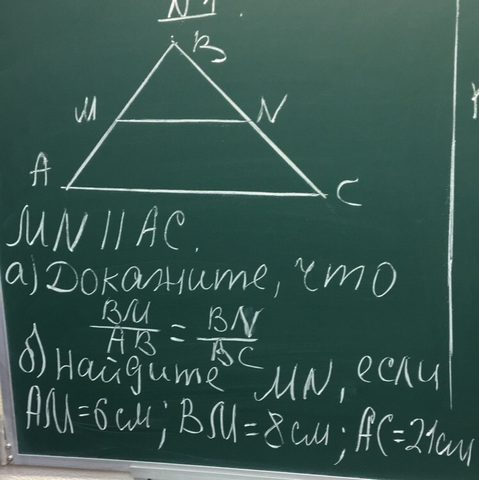 №1.
B
M N
A C
MN || AC.
а) Докажите, что
BM/AB = BN/BC
б) Найдите MN, если
AM=6см; BM=8см; AC=21см